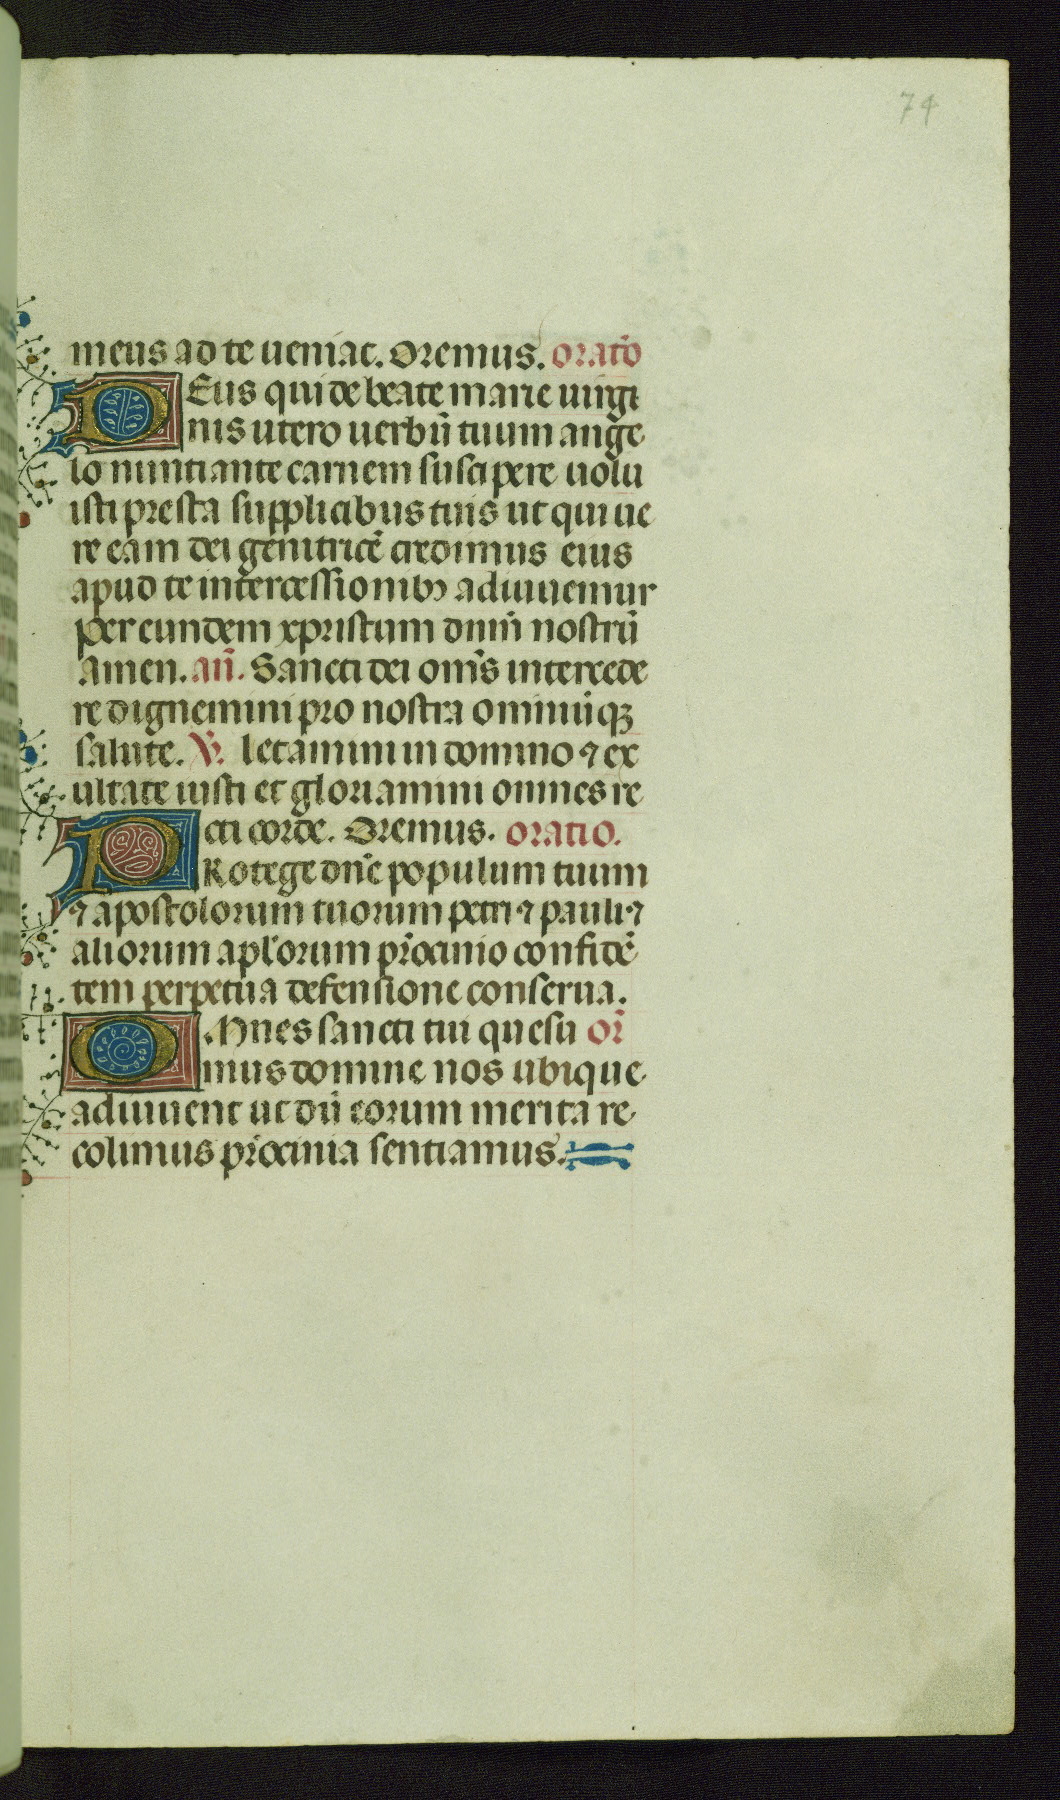 74
meus ad te ueniat. Oremus. orat̄o
DEus qui de beate marie uirgi
nis utero uerbū tuum ange
lo nuntiante carnem suscipere uolu
isti presta supplicibus tuis ut qui ue
re eam dei genitricē credimus eius
apud te intercessionibꝫ adiuuemur
per eundem xpristum dnm̄ nostrū
Amen. an̄. Sancti dei om̄s intercede
re dignemini pro nostra omniūqꝫ
salute. ℣. letamini in domino ⁊ ex
ultate iusti et gloriamini omnes re
cti corde. Oremus. oratio.
PRotege dn̄e populum tuum
⁊ apostolorum tuorum petri ⁊ pauli ⁊
aliorum apl̄orum pr̄ocinio confidē
tem perpetua defensione conserua.
OMnes sancti tui quesu or̄
mus domine nos ubique
adiuuent ut dū eorum merita re
colimus pr̄ocinia sentiamus.